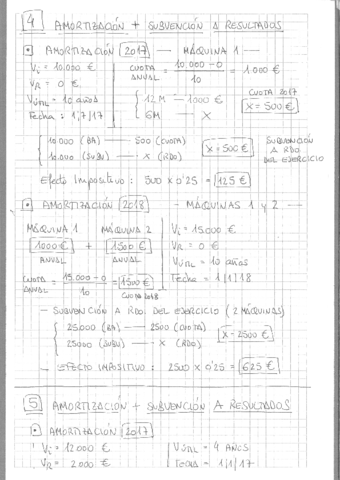 4 AMORTIZACIÓN + SUBVENCIÓN A RESULTADOS
AMORTIZACIÓN 2017 — MÁQUINA 1 —
Vi = 10.000 €
VR = 0 €
Vútil = 10 años
Fecha: 1/7/17
CUOTA ANUAL = 10.000 - 0 / 10 = 1000 €
CUOTA 2017
12M — 1000 €
6M — X
X = 500 €
10.000 (BA) — 500 (CUOTA)
10.000 (SUBV) — X (RDO)
X = 500 €
SUBVENCIÓN
A RDO
DEL EJERCICIO
Efecto Impositivo: 500 x 0'25 = 125 €
AMORTIZACIÓN 2018 - MÁQUINAS 1 y 2 —
MÁQUINA 1 MÁQUINA 2
1000 € + 1500 €
ANUAL ANUAL
CUOTA ANUAL = 15.000 - 0 / 10 = 1500 €
CUOTA 2018
Vi = 15.000 €
VR = 0 €
Vútil = 10 años
Fecha: 1/1/18
— SUBVENCIÓN A RDO DEL EJERCICIO (2 MÁQUINAS)
25.000 (BA) — 2500 (CUOTA)
25000 (SUBV) — X (RDO)
X = 2500 €
— EFECTO IMPOSITIVO: 2500 x 0'25 = 625 €
5 AMORTIZACIÓN + SUBVENCIÓN A RESULTADOS
AMORTIZACIÓN 2017
Vi = 12000 €
VR = 2000 €
Vútil = 4 AÑOS
FECHA = 1/1/17